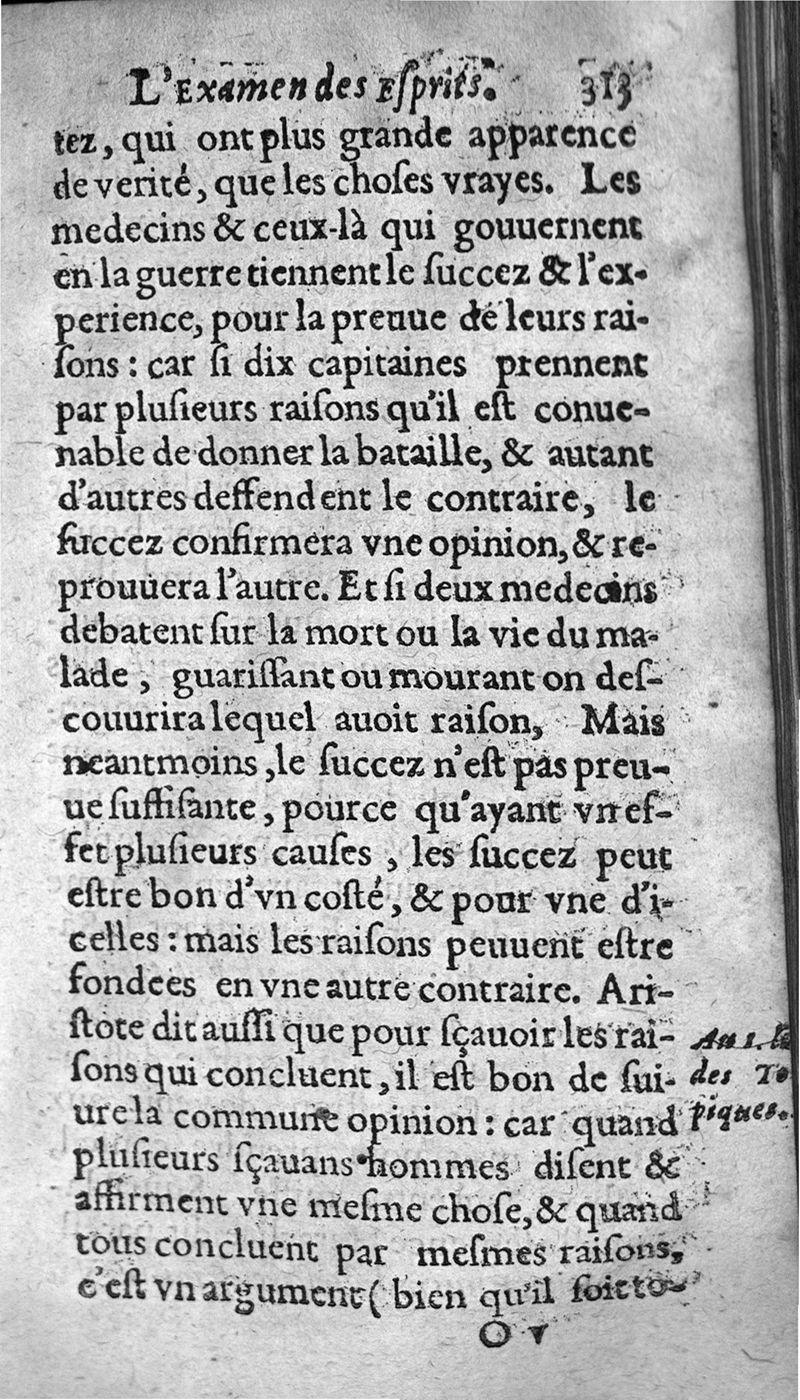 L'Examen des Eſprits. 313
tez, qui ont plus grande apparence
de verité, que les choſes vrayes. Les
medecins & ceux-là qui gouuernent
en la guerre tiennent le ſuccez & l'ex-
perience, pour la preuue de leurs rai-
ſons : car ſi dix capitaines prennent
par pluſieurs raiſons qu'il eſt conue-
nable de donner la bataille, & autant
d'autres deffendent le contraire, le
ſuccez confirmera vne opinion, & re-
prouuera l'autre. Et ſi deux medecins
debatent ſur la mort ou la vie du ma-
lade, guariſſant ou mourant on deſ-
couurira lequel auoit raiſon, Mais
neantmoins, le ſuccez n'eſt pas preu-
ue ſuffiſante, pource qu'ayant vn ef-
fet pluſieurs cauſes, les ſuccez peut
eſtre bon d'vn coſté, & pour vne d'i-
celles : mais les raiſons peuuent eſtre
fondees en vne autre contraire. Ari-
ſtote dit auſſi que pour ſçauoir les rai-
ſons qui concluent, il eſt bon de ſui-
ure la commune opinion : car quand
pluſieurs ſçauans hommes diſent &
affirment vne meſme choſe, & quand
tous concluent par meſmes raiſons,
c'eſt vn argument ( bien qu'il ſoit to-
O v
Au 1. 
des To
piques.